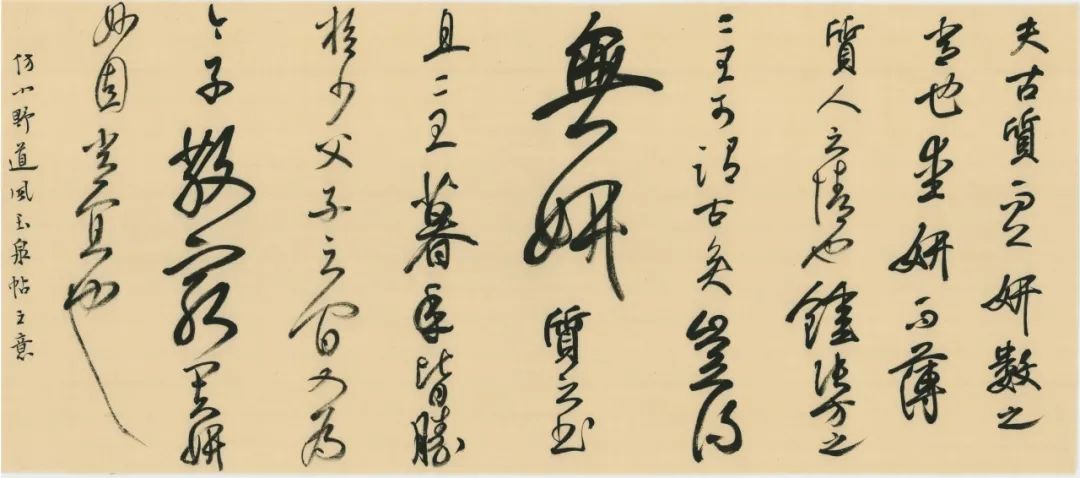 夫古質而今妍數之
常也愛妍而薄
質人之情也鍾張方之
二王可謂古矣豈得
無妍質之殊
且二王暮年皆勝
於少父子之間又為
今子敬窮其妍
妙固其宜也
仿小野道風玉泉帖之意